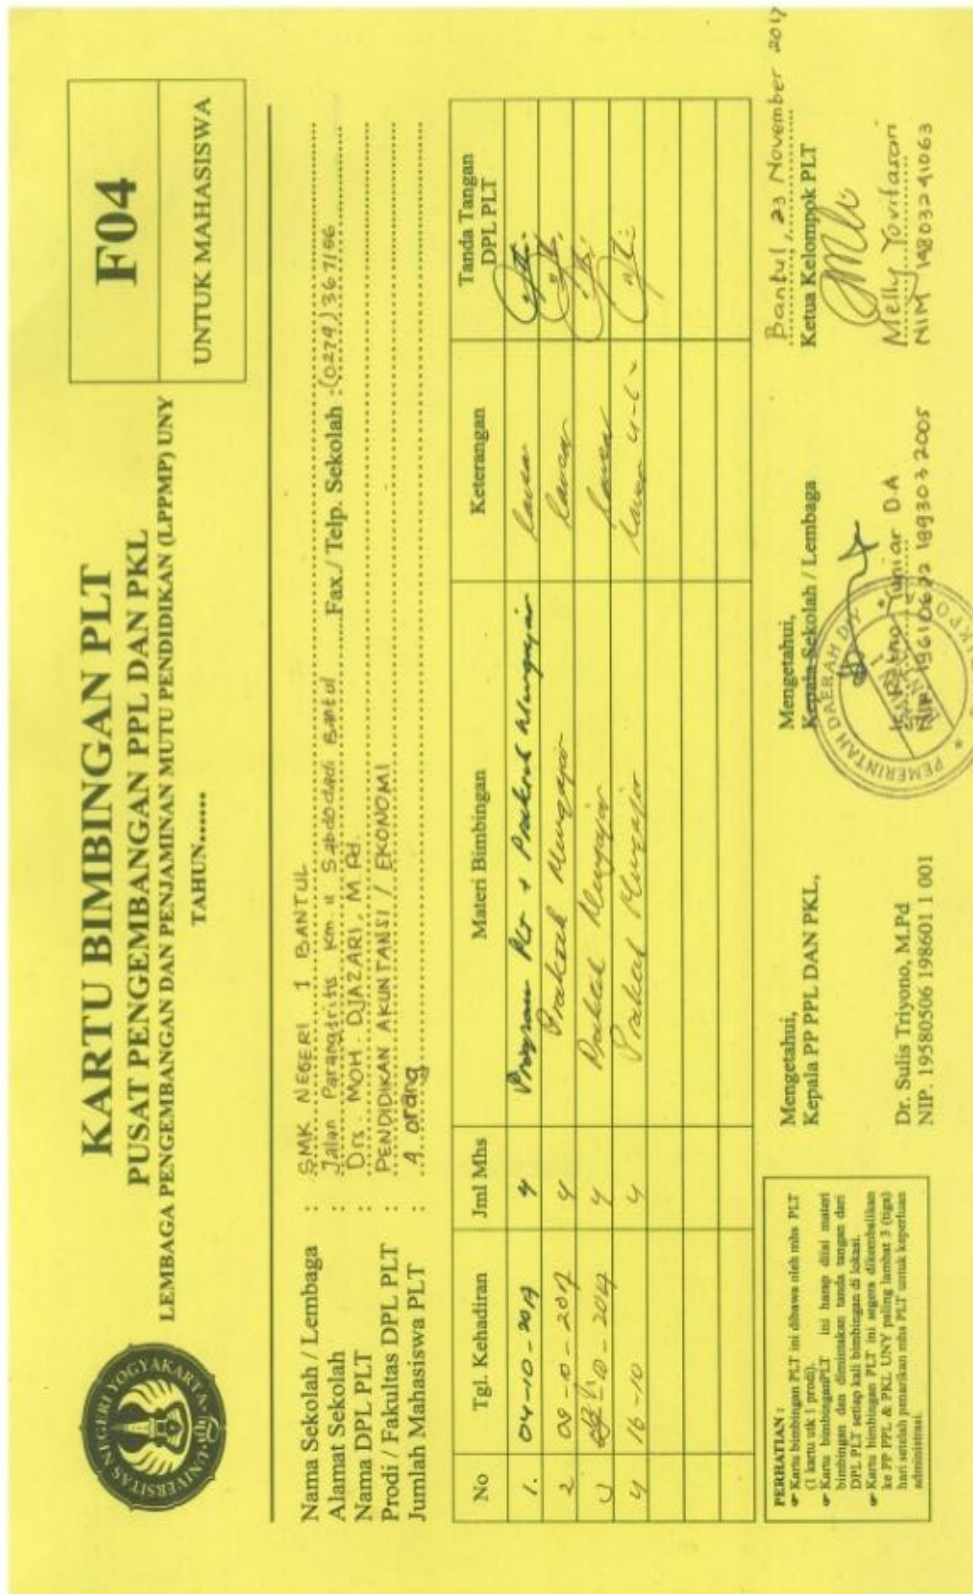 F04
UNTUK MAHASISWA
KARTU BIMBINGAN PLT
PUSAT PENGEMBANGAN PPL DAN PKL
LEMBAGA PENGEMBANGAN DAN PENJAMINAN MUTU PENDIDIKAN (LPPMP) UNY
TAHUN.......
UNIVERSITAS NEGERI YOGYAKARTA
Nama Sekolah / Lembaga : SMK NEGERI 1 BANTUL
Alamat Sekolah : Jalan Parangtritis Km 11 Sabdodadi Bantul Fax./ Telp. Sekolah : (0274) 367156
Nama DPL PLT : Drs. MOH. DJAZARI, M.Pd.
Prodi / Fakultas DPL PLT : PENDIDIKAN AKUNTANSI / EKONOMI
Jumlah Mahasiswa PLT : 4 orang
No Tgl. Kehadiran Jml Mhs Materi Bimbingan Keterangan Tanda Tangan DPL PLT
1. 04-10-2017 4 Program PLT + Praktek Mengajar
2 09-10-2017 4 Praktek Mengajar
3 -10-2017 4 Praktek Mengajar
4 16-10 4 Praktek Mengajar
PERHATIAN :
☞ Kartu bimbingan PLT ini dibawa oleh mhs PLT
(1 kartu utk 1 prodi).
☞ Kartu bimbinganPLT ini harap diisi materi
bimbingan dan dimintakan tanda tangan dari
DPL PLT setiap kali bimbingan di lokasi.
☞ Kartu bimbingan PLT ini segera dikembalikan
ke PP PPL & PKL UNY paling lambat 3 (tiga)
hari setelah penarikan mhs PLT untuk keperluan
administrasi.
Mengetahui,
Kepala PP PPL DAN PKL,
Dr. Sulis Triyono, M.Pd
NIP. 19580506 198601 1 001
Mengetahui,
Kepala Sekolah / Lembaga
Yuniar D A
NIP 19610622 199303 2005
PEMERINTAH DAERAH
Bantul, 23 November 2017
Ketua Kelompok PLT
Melly Yovitasari
NIM 14803241063